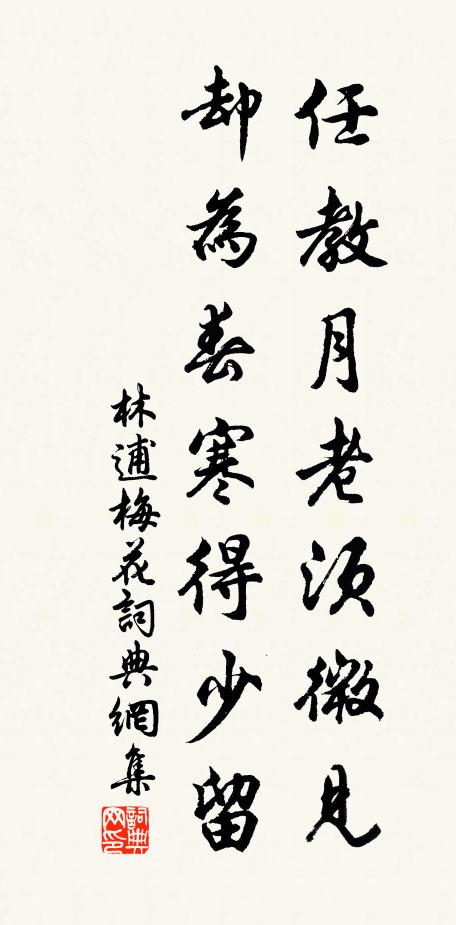 任教月老須微見
却為春寒得少留
林逋梅花詞典網集
詞典网印